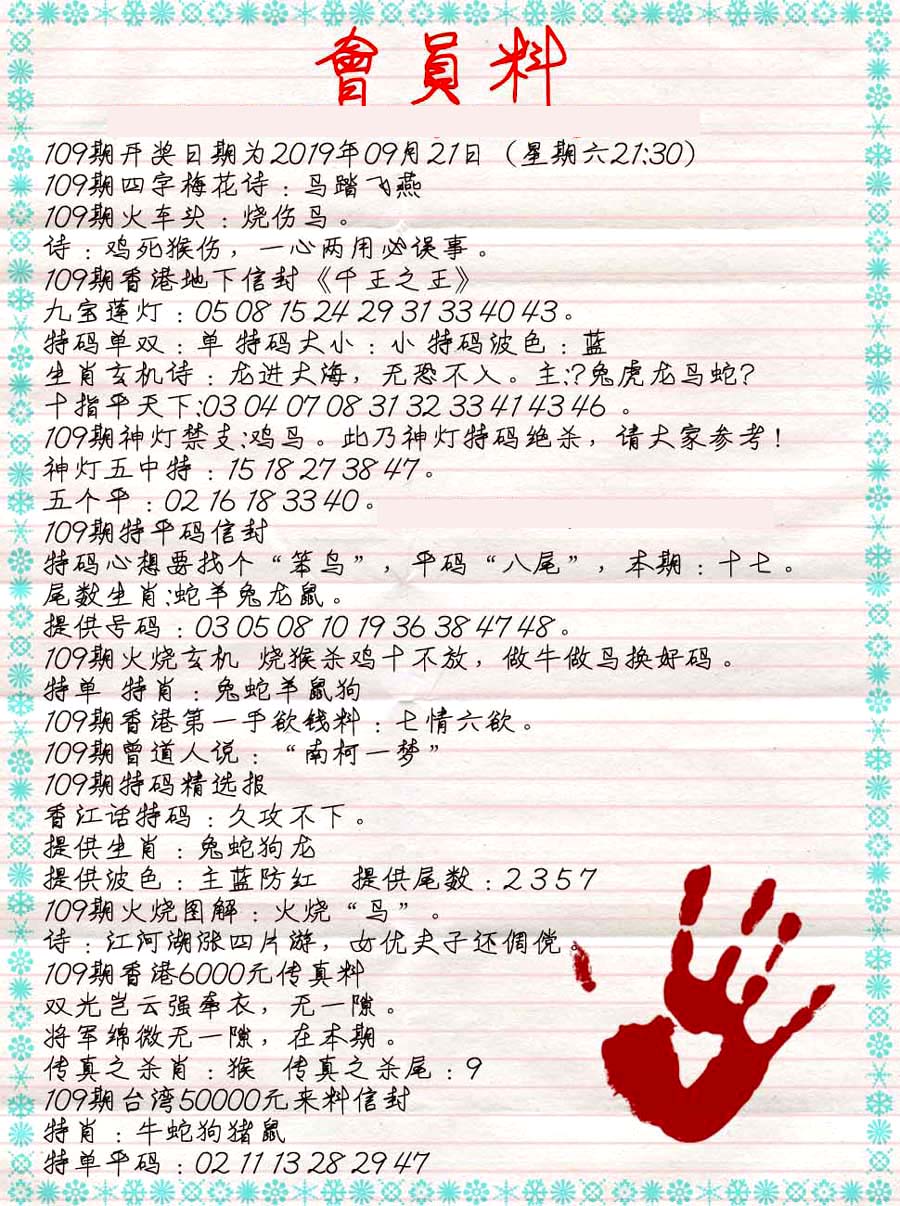 會員料
109期开奖日期为2019年09月21日（星期六21:30）
109期四字梅花诗：马踏飞燕
109期火车头：烧伤鸟。
诗：鸡死猴伤，一心两用必误事。
109期香港地下信封《千王之王》
九宝莲灯：05 08 15 24 29 31 33 40 43。
特码单双：单 特码大小：小 特码波色：蓝
生肖玄机诗：龙进大海，无恐不入。主:?兔虎龙马蛇?
十指平天下:03 04 07 08 31 32 33 41 43 46 。
109期神灯禁支:鸡鸟。此乃神灯特码绝杀，请大家参考！
神灯五中特：15 18 27 38 47。
五个平：02 16 18 33 40。
109期特平码信封
特码心想要找个“笨鸟”，平码“八尾”，本期：十七。
尾数生肖:蛇羊兔龙鼠。
提供号码：03 05 08 10 19 36 38 47 48。
109期火烧玄机 烧猴杀鸡十不放，做牛做马换好码。
特单 特肖：兔蛇羊鼠狗
109期香港第一手欲钱料：七情六欲。
109期曾道人说：“南柯一梦”
109期特码精选报
香江话特码：久攻不下。
提供生肖：兔蛇狗龙
提供波色：主蓝防红 提供尾数：2 3 5 7
109期火烧图解：火烧“鸟”。
诗：江河湖涨四片游，女优夫子还倜傥。
109期香港6000元传真料
双光岂云强牵衣，无一隙。
将军绵微无一隙，在本期。
传真之杀肖：猴 传真之杀尾：9
109期台湾50000元来料信封
特肖：牛蛇狗猪鼠
特单平码：02 11 13 28 29 47